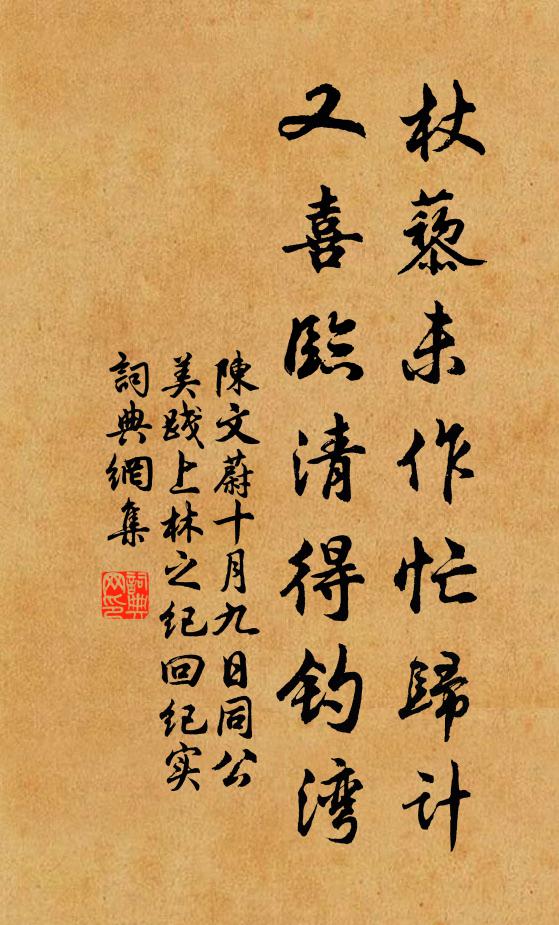 杖藜未作忙歸計
又喜臨清得钓湾
陳文蔚十月九日同公
美践上林之纪回纪实
詞典網集
詞典網印